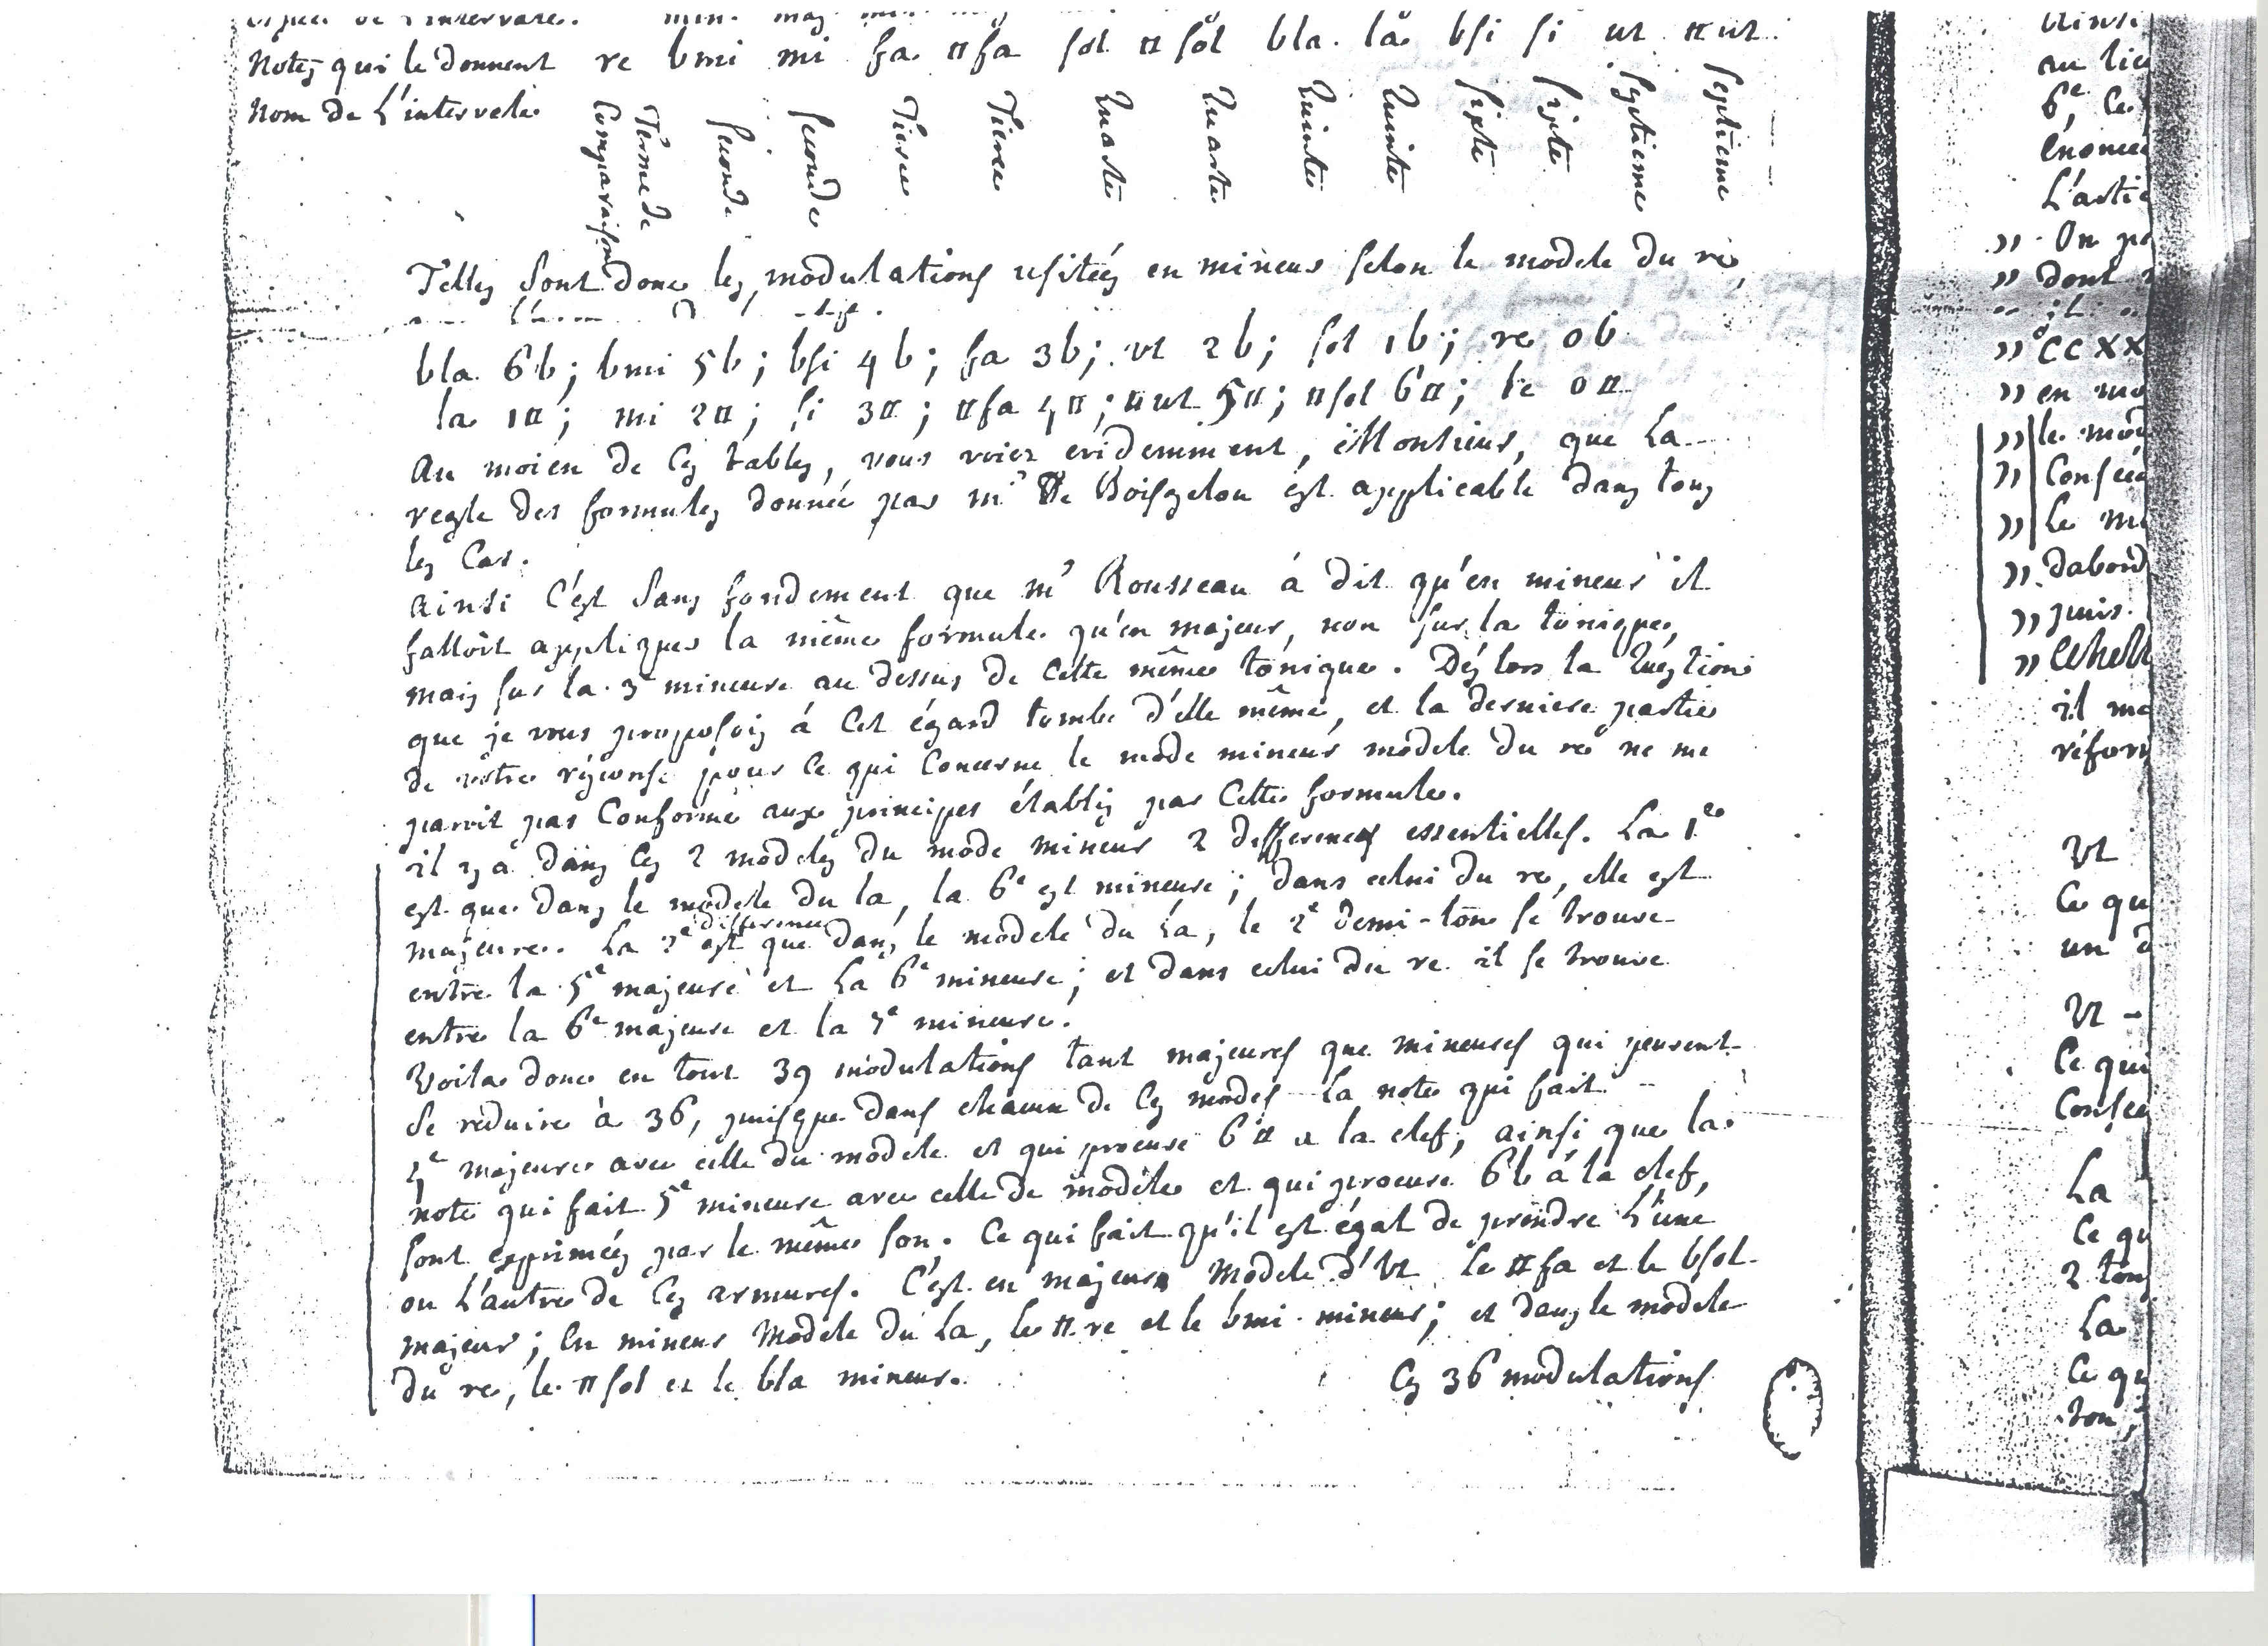 espece de L'intervale. min. maj. min.
Notes qui le donnent re bmi mi fa ♯fa sol ♯sol bla la bsi si ut ♯ut
Nom de L'intervale Terme de Comparaison Seconde Seconde Tierce Tierce Quarte Quarte Quinte Quinte Sixte Sixte Septieme Septieme
Telles sont donc les modulations usitées en mineur selon le modele du re,
bla 6b; bmi 5b; bsi 4b; fa 3b; ut 2b; sol 1b; re 0b
la 1♯; mi 2♯; si 3♯; ♯fa 4♯; ♯ut 5♯; ♯sol 6♯; re 0♯
Au moien de ces tables, vous voiez evidemment, Monsieur, que La
regle des formules donnée par mr De Boisgelou est applicable dans tous
les Cas.
Ainsi C'est sans fondement que mr Rousseau à dit qu'en mineur il
falloit appliquer la même formule qu'en majeur, non sur la tonique,
mais sur la 3e mineure au dessus de Cette même tonique. Dès lors la Question
que je vous proposois à Cet égard tombe d'elle même, et la derniere partie
de votre réponse pour Ce qui Concerne le mode mineur modele du re ne me
paroit pas Conforme aux principes établis par Cette formule.
il y a dans Ces 2 modeles du mode mineur 2 differences essentielles. La 1re
est que dans le modele du la, la 6e est mineure; dans celui du re, elle est
majeure. La 2e difference est que dans le modele du La, le 2e demi-ton se trouve
entre la 5e majeure et La 6e mineure; et dans celui du re il se trouve
entre la 6e majeure et la 7e mineure.
Voila donc en tout 39 modulations tant majeures que mineures qui peuvent
Se réduire à 36, puisque dans chacun de Ces modes La note qui fait
4e majeure avec celle du modele et qui procure 6♯ a la clef, ainsi que la
note qui fait 5e mineure avec celle de modele et qui procure 6b à la clef,
sont exprimées par le même son. Ce qui fait qu'il est égal de prendre L'une
ou L'autre de Ces armures. C'est en majeur Modele d'Ut le ♯fa et le bsol
majeur; En mineur Modele du La, le ♯re et le bmi mineur; et dans le modele
du re, le ♯sol et le bla mineur. Ces 36 modulations
au lieu
6e, Ce
L'artic
„ On
„ dont
„ il
„ CCXX
„ en mo
„ le mod
„
„ le m
„ dabord
„ puis
„
il me
réform
Ut
Ce qu
un d
Ut -
Ce qui
La
Ce qu
2 ton
La
Ce qu
ton,